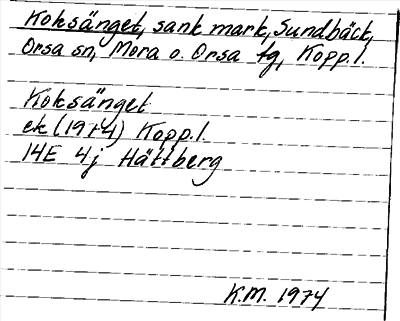 Koksänget, sank mark, Sundbäck,
Orsa sn, Mora o. Orsa tg, Kopp.l.
Koksänget
ek (1974) Kopp.l.
14E 4j Hättberg
K.M. 1974